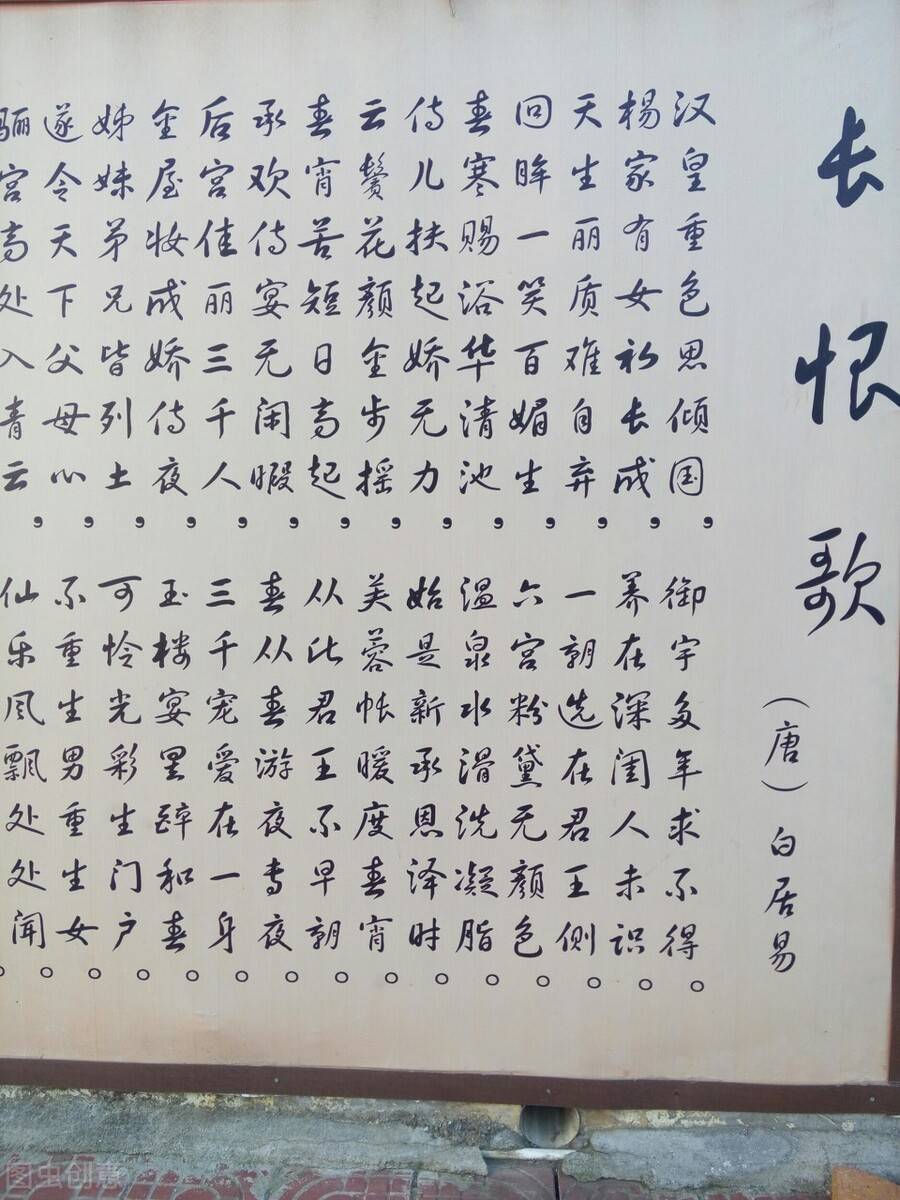 长恨歌
（唐）白居易
汉皇重色思倾国，御宇多年求不得。
杨家有女初长成，养在深闺人未识。
天生丽质难自弃，一朝选在君王侧。
回眸一笑百媚生，六宫粉黛无颜色。
春寒赐浴华清池，温泉水滑洗凝脂。
侍儿扶起娇无力，始是新承恩泽时。
云鬓花颜金步摇，芙蓉帐暖度春宵。
春宵苦短日高起，从此君王不早朝。
承欢侍宴无闲暇，春从春游夜专夜。
后宫佳丽三千人，三千宠爱在一身。
金屋妆成娇侍夜，玉楼宴罢醉和春。
姊妹弟兄皆列土，可怜光彩生门户。
遂令天下父母心，不重生男重生女。
骊宫高处入青云，仙乐风飘处处闻。
图虫创意